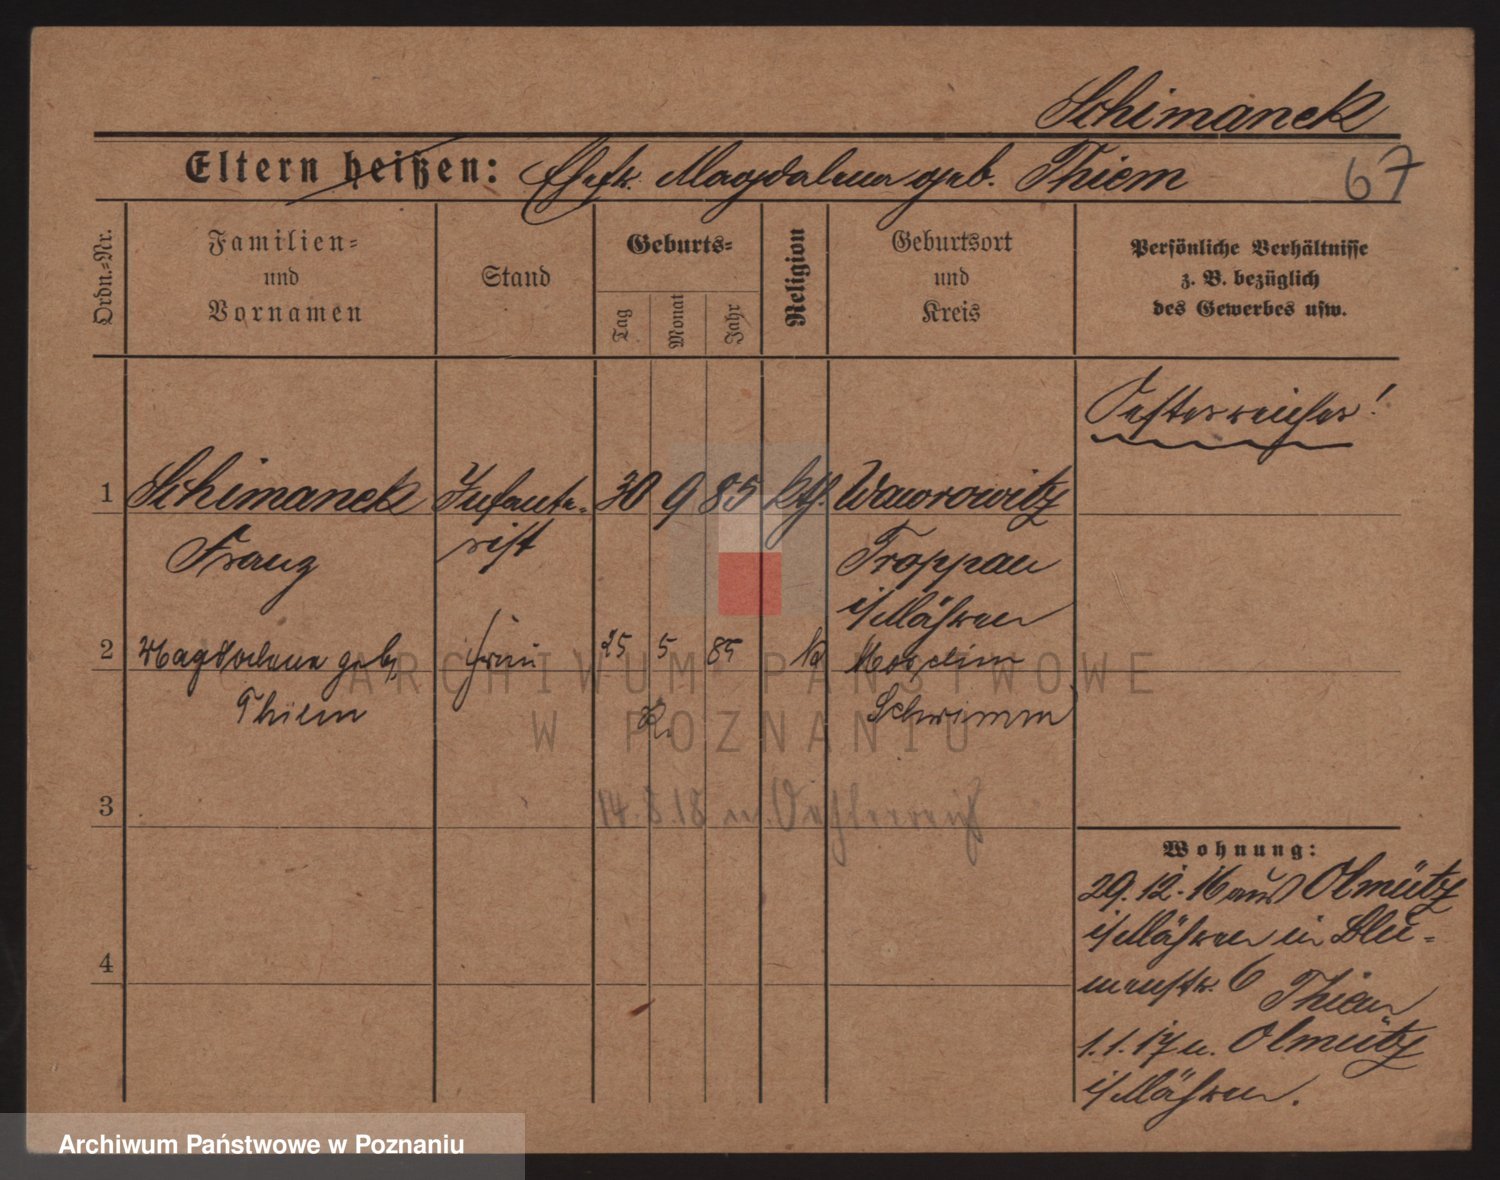 Schimanek
Eltern heißen: Ehefr. Magdalena geb. Thiem
67
Ordn.=Nr.
Familien=
und
Vornamen
Stand
Geburts=
Tag
Monat
Jahr
Religion
Geburtsort
und
Kreis
Persönliche Verhältnisse
z. B. bezüglich
des Gewerbes usw.
Oesterreicher!
1 Schimanek Infante= 30 9 85 kth. Wawrowitz
Franz rist Troppau
i/Mähren
2 Magdalena geb. Frau 25 5 85
Thiem K. Schrimm
ARCHIWUM PAŃSTWOWE
W POZNANIU
3 14.8.18 n. Oesterreich
Wohnung:
29.12.16 aus Olmütz
i/Mähren in Blu=
menstr. 6 Thiem
4
1.1.17 n. Olmütz
i/Mähren.
Archiwum Państwowe w Poznaniu